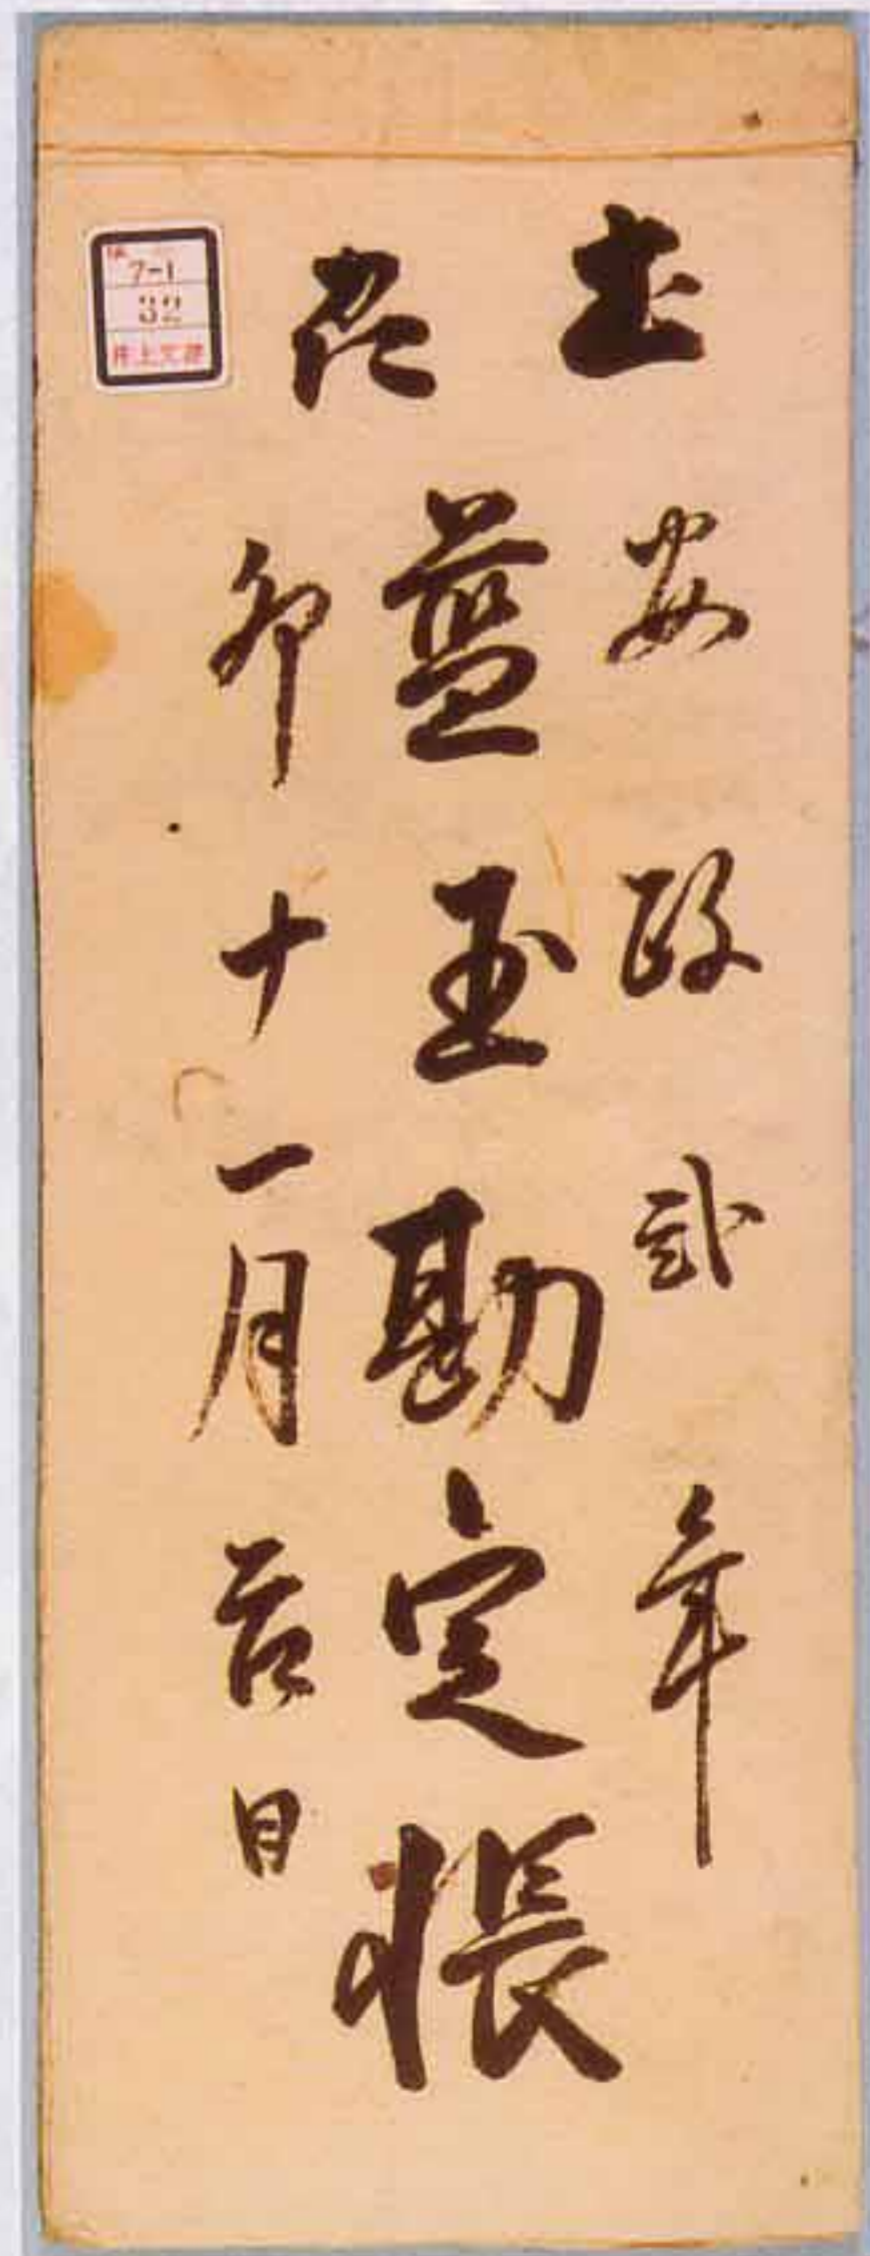 安政弐年
藍玉勘定帳
卯十一月吉日
7-1
32
井上文書